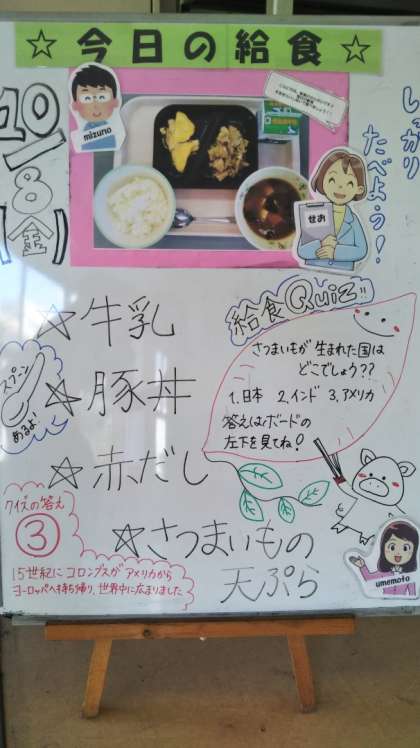 ☆今日の給食☆
10/8(金)
しっかり
たべよう!
mizuno
せお
☆牛乳
☆豚丼
☆赤だし
☆さつまいもの
天ぷら
スプーン
あるよ
給食Quiz!!
さつまいもが生まれた国は
どこでしょう??
1.日本 2.インド 3.アメリカ
答えはボードの
左下を見てね!
クイズの答え
③
15世紀にコロンブスがアメリカから
ヨーロッパへ持ち帰り、世界中に広まりました
umemoto